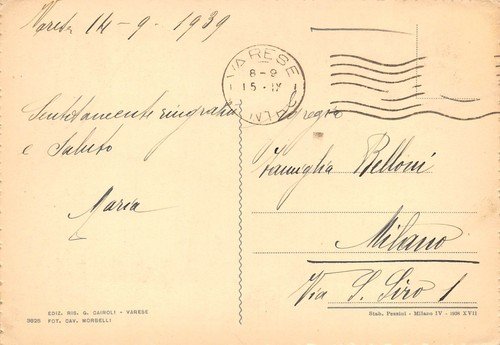 Varese 14-9-1939
Sentitamente ringrazio
e saluto
Maria
VARESE
8-9
15·IX
Egregia
Famiglia Belloni
Milano
Via S. Siro 1
EDIZ. RIS. G. CAIROLI - VARESE
3625 FOT. CAV. MORBELLI
Stab. Pezzini - Milano IV - 1938 XVII